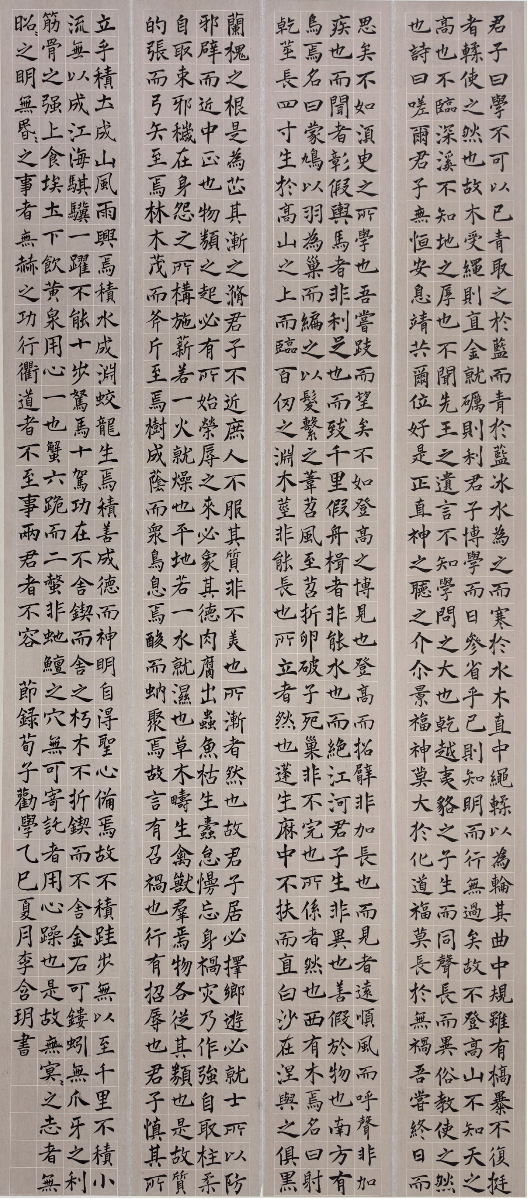 君子曰學不可以已青取之於藍而青於藍冰水為之而寒於水木直中繩輮以為輪其曲中規雖有槁暴不復挺
者輮使之然也故木受繩則直金就礪則利君子博學而日參省乎己則知明而行無過矣故不登高山不知天之
高也不臨深溪不知地之厚也不聞先王之遺言不知學問之大也乾越夷貉之子生而同聲長而異俗教使之然
也詩曰嗟爾君子無恒安息靖共爾位好是正直神之聽之介尒景福神莫大於化道福莫長於無禍吾嘗終日而
思矣不如湏臾之所學也吾嘗跂而望矣不如登高之博見也登高而招臂非加長也而見者遠順風而呼聲非加
疾也而聞者彰假輿馬者非利足也而致千里假舟楫者非能水也而絕江河君子生非異也善假於物也南方有
鳥焉名曰蒙鳩以羽為巢而編之以髮繫之葦苕風至苕折卵破子死巢非不完也所係者然也西有木焉名曰射
乾莖長四寸生於高山之上而臨百仞之淵木莖非能長也所立者然也蓬生麻中不扶而直白沙在涅與之俱黑
蘭槐之根是為芷其漸之滫君子不近庶人不服其質非不美也所漸者然也故君子居必擇鄉遊必就士所以防
邪辟而近中正也物類之起必有所始榮辱之來必象其德肉腐出蟲魚枯生蠹怠慢忘身禍災乃作強自取柱柔
自取束邪穢在身怨之所構施薪若一火就燥也平地若一水就濕也草木疇生禽獸羣焉物各從其類也是故質
的張而弓矢至焉林木茂而斧斤至焉樹成蔭而衆鳥息焉酸而蚋聚焉故言有召禍也行有招辱也君子慎其所
立乎積土成山風雨興焉積水成淵蛟龍生焉積善成德而神明自得聖心備焉故不積跬步無以至千里不積小
流無以成江海騏驥一躍不能十步駑馬十駕功在不舍鍥而舍之朽木不折鍥而不舍金石可鏤蚓無爪牙之利
筋骨之强上食埃土下飲黃泉用心一也蟹六跪而二螯非虵鱓之穴無可寄託者用心躁也是故無冥〻之志者無
昭〻之明無惛〻之事者無赫之功行衢道者不至事兩君者不容 節錄荀子勸學乙巳夏月李含玥書